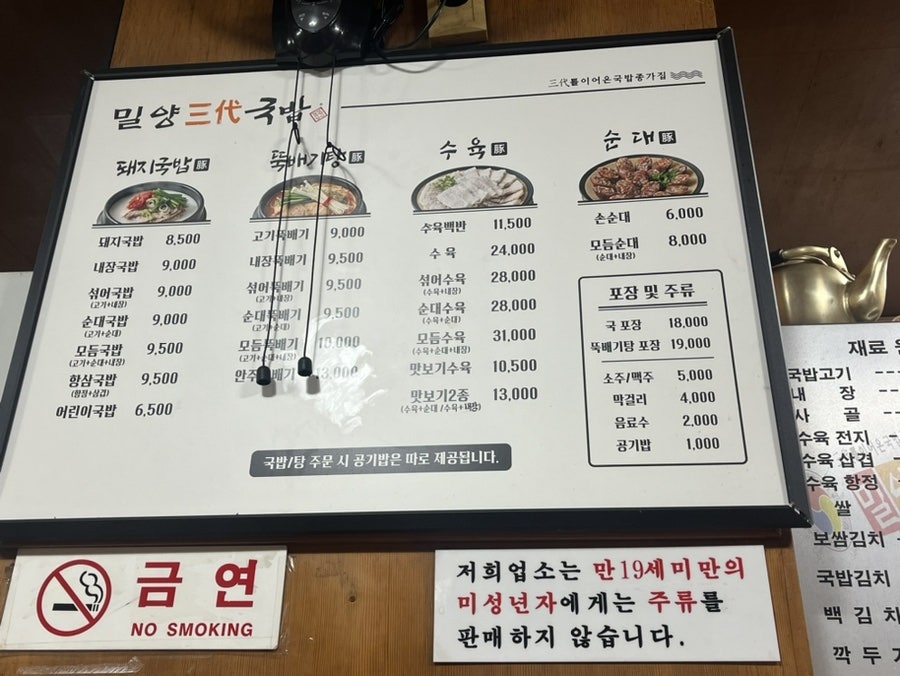 三代를이어온국밥종가집
밀양三代국밥
돼지국밥 豚
돼지국밥 8,500
내장국밥 9,000
섞어국밥 9,000
(고기+내장)
순대국밥 9,000
(고기+순대)
모듬국밥 9,500
(고기+순대+내장)
항삼국밥 9,500
(항정+삼겹)
어린이국밥 6,500
뚝배기탕 豚
고기뚝배기 9,000
내장뚝배기 9,500
섞어뚝배기 9,500
(고기+내장)
순대뚝배기 9,500
(고기+순대)
모듬뚝배기 10,000
(고기+순대+내장)
안주 배기
수육 豚
수육백반 11,500
수육 24,000
섞어수육 28,000
(수육+내장)
순대수육 28,000
(수육+순대)
모듬수육 31,000
(수육+순대+내장)
맛보기수육 10,500
맛보기2종 13,000
(수육+순대 /수육+내장)
순대 豚
손순대 6,000
모듬순대 8,000
(순대+내장)
포장 및 주류
국 포장 18,000
뚝배기탕 포장 19,000
소주/맥주 5,000
막걸리 4,000
음료수 2,000
공기밥 1,000
국밥/탕 주문 시 공기밥은 따로 제공됩니다.
금연
NO SMOKING
저희업소는 만19세미만의
미성년자에게는 주류를
판매하지 않습니다.
재료
국밥고기
내 장
사 골
수육 전지
수육 삼겹
수육 항정
쌀
보쌈김치
국밥김치
백 김 치
깍 두